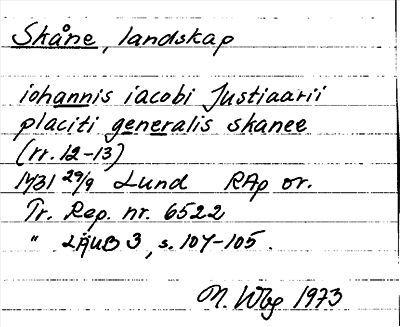 Skåne, landskap
iohannis iacobi Justiaarii
placiti generalis skanee
(rr. 12-13)
1431 29/9 Lund RAp or.
Tr. Rep. nr. 6522
" LÄUB 3, s. 104-105.
M. Wbg 1973